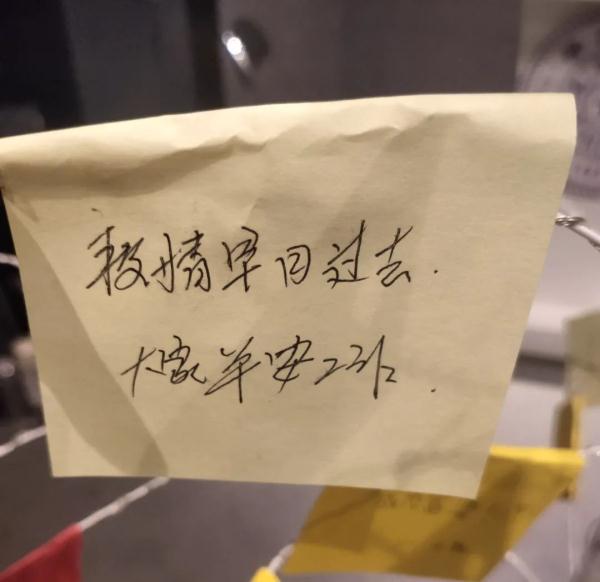 疫情早日过去.
大家平安